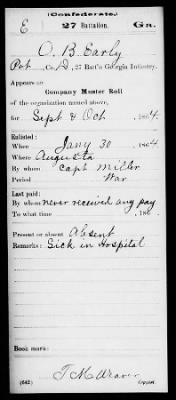 (Confederate.)
E 27 Battalion. Ga.
O. B. Early
Pvt, Co. D, 27 Batt'n Georgia Infantry.
Appears on
Company Muster Roll
of the organization named above,
for Sept & Oct, 1864.
Enlisted:
When Jany 30, 1864
Where Augusta
By whom Capt Miller
Period War
Last paid:
By whom never received any pay
To what time , 186 .
Present or absent Absent
Remarks: Sick in Hospital
Book mark:
(642) Copyist.